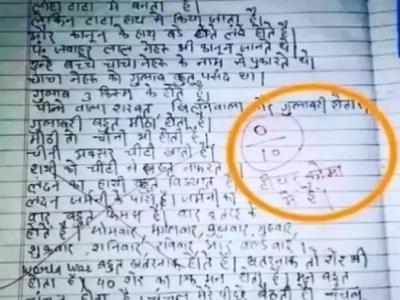 लोहा टाटा में बनता है।
लेकिन टाटा हाथ से किया जाता है।
और कानून के हाथ बड़े होते लंबे होते है।
पं. जवाहर लाल नेहरू भी कानून जानते थे।
उन्हें बच्चे चाचा नेहरू के नाम से पुकारते थे।
चाचा नेहरू को गुलाब बहुत पसंद था।
गुलाब 3 किस्म के होते है
पीने वाला शरबत और गुलाबरी होता है।
गुलाबरी बहुत मीठा होता है।
मीठी तो चीनी भी होती है।
चीनी अक्सर चींटी खाती है।
हाथी को चींटी से बहुत नफरत है।
लंदन का हाथी बहुत विख्यात है
लंदन जर्मनी के पास है। जर्मनी का
वार बहुत फेमस है। वार 8 तरह के
होते है। सोमवार, मंगलवार, बुधवार, गुरूवार,
शुक्रवार, शनिवार, रविवार और वर्ल्डवार।
World War बहुत खतरनाक होते है। खतरनाक तो शेर भी
होता है। 40 शेर का 1 मन होता है। मन बहुत
चंचल होता है। चंचल मेरे पीछे बैठती है।
0
10
टीचर कोमा
में है।